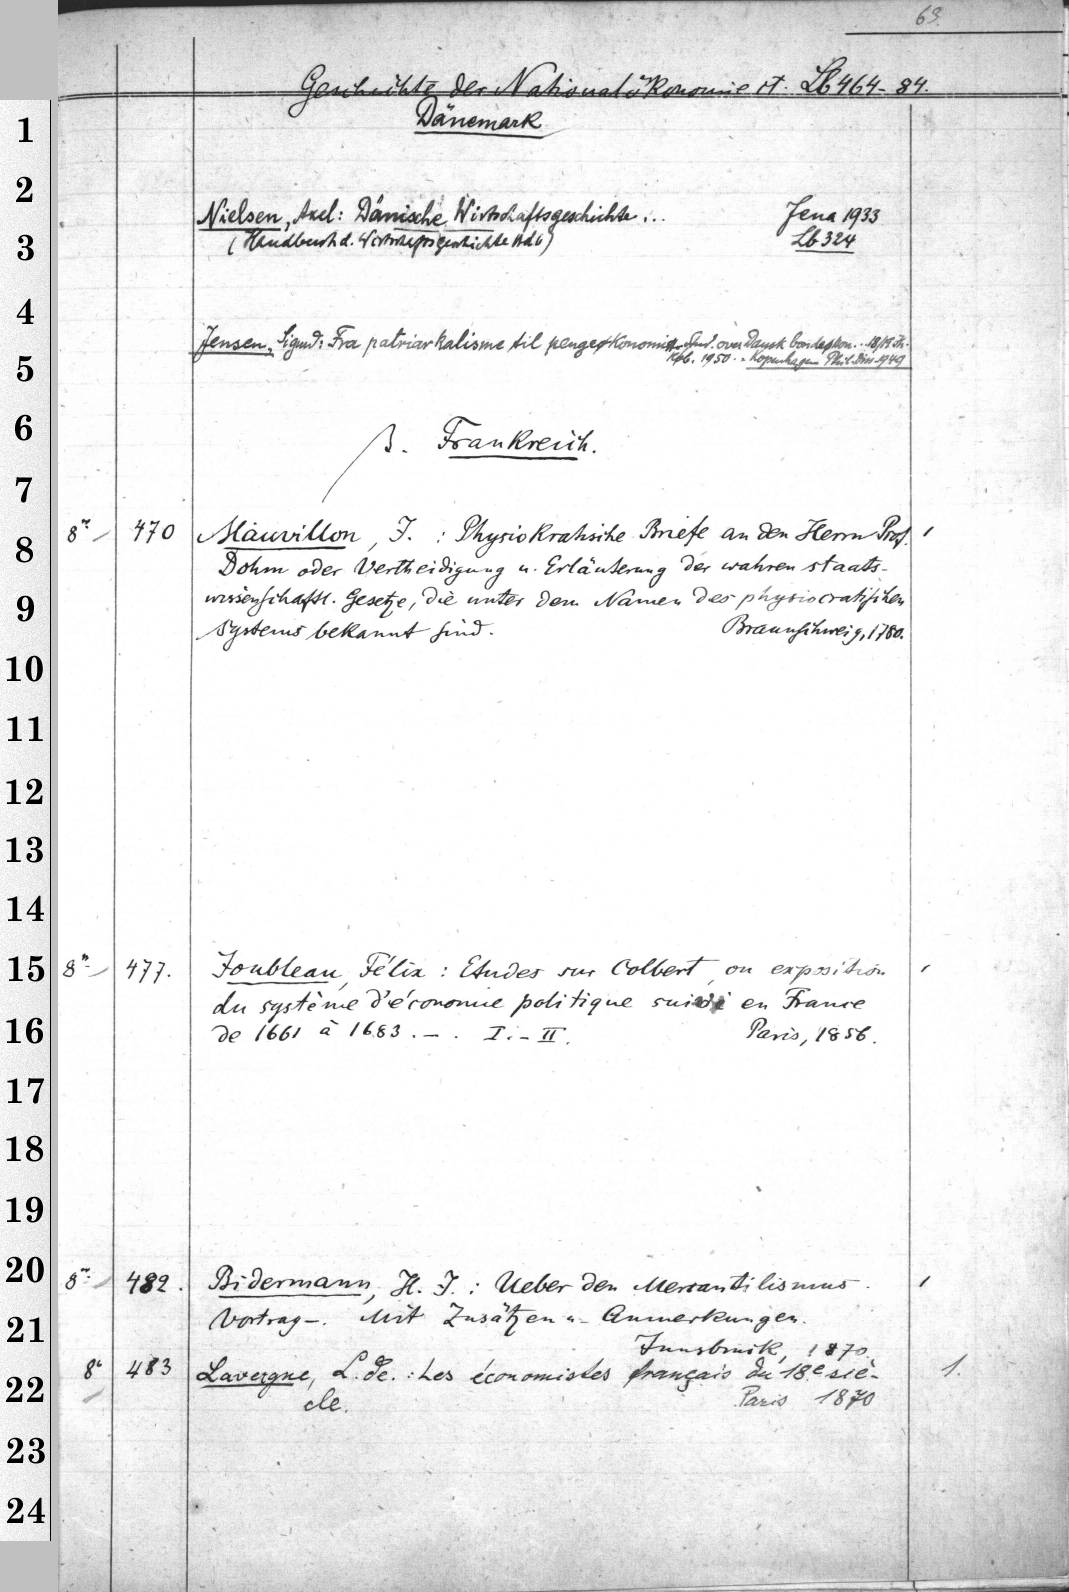 69.
Geschichte der Nationalökonomie Lb 464-84.
1
Dänemark
2
Nielsen, Axel: Dänische Wirtschaftsgeschichte... Jena 1933
3
(Handbuch d. Wirtschaftsgeschichte Bd 6) Lb 324
4
Jensen, Sigurd: Fra patriarkalisme til pengeøkonomi. over Dansk bondeøkon. .. 18/19 Jh.
5
Kph. 1950. - Kopenhagen Phil. Diss 1949
6
β. Frankreich.
7
8° 470 Mauvillon, J. : Physiokratische Briefe an den Herrn Prof.
8
Dohm oder Vertheidigung u. Erläuterung der wahren staats-
9
wissenschaftl. Gesetze, die unter dem Namen des physiocratischen
Systems bekannt sind. Braunschweig, 1780.
10
11
12
13
14
15
8° 477. Joubleau, Félix : Etudes sur Colbert, ou exposition
du système d'économie politique suivi en France
16
de 1661 à 1683. - . I. - II. Paris, 1856.
17
18
19
20
8° 482. Bidermann, H. J. : Ueber den Mercantilismus.
21
Vortrag -. Mit Zusätzen u- Anmerkungen.
Innsbruck, 1870.
22
8° 483 Lavergne, L. de. : Les économistes français du 18e siè- 1.
cle. Paris 1870
23
24